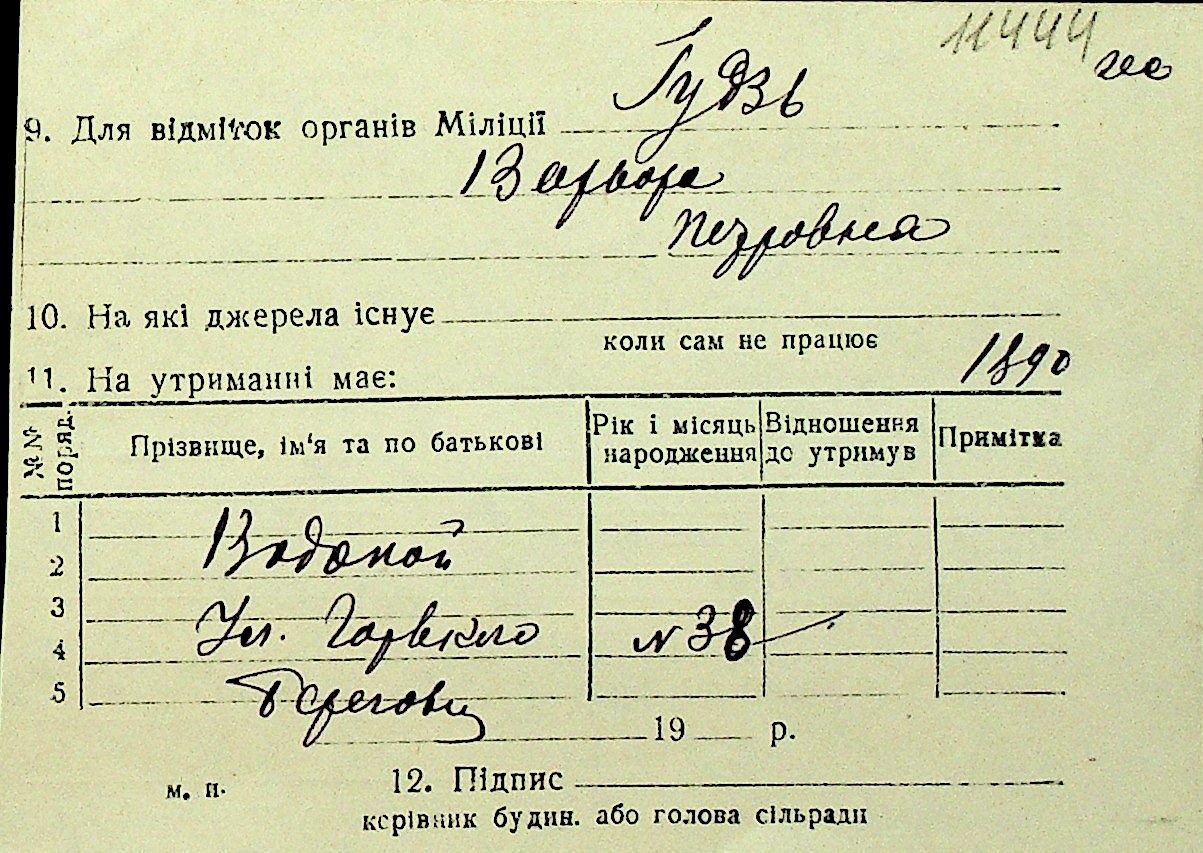 11444
Гудзь
9. Для відміток органів Міліції
Варвара
Петровна
10. На які джерела існує
коли сам не працює
1890
11. На утриманні має:
№№ поряд.
Прізвище, ім'я та по батькові
Рік і місяць народження
Відношення до утримув
Примітка
1
2
Водяной
3
4
Ул. Горького
№ 38
5
19 р.
м. п.
12. Підпис
керівник будин. або голова сільради